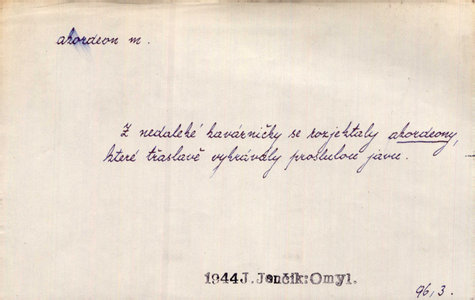 akordeon m.
Z nedaleké kavárničky se rozjektaly akordeony,
které třaslavě vyhrávaly proslulou javu.
1944 J. Jenčík: Omyl.
96,3.